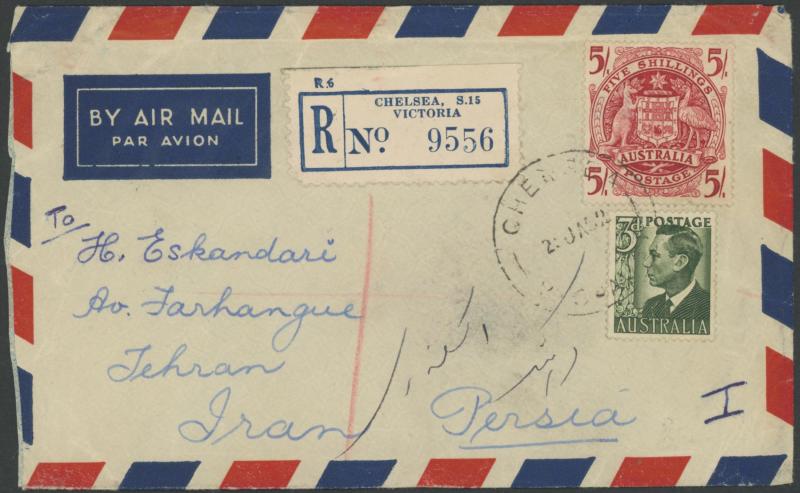 BY AIR MAIL
PAR AVION
R.6
CHELSEA, S.15
VICTORIA
R No. 9556
5/. 5/.
FIVE SHILLINGS
AUSTRALIA
POSTAGE
5/. 5/.
3d POSTAGE
AUSTRALIA
To
H. Eskandari
Av. Farhangue
Tehran
Iran Persia
I